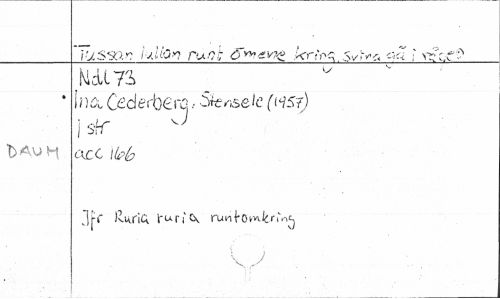 Tussan lullan runt omene kring, svina gå i råge
Ndl 73
Ina Cederberg, Stensele (1957)
1 str
DAUM acc 166
Jfr Ruria ruria runtomkring